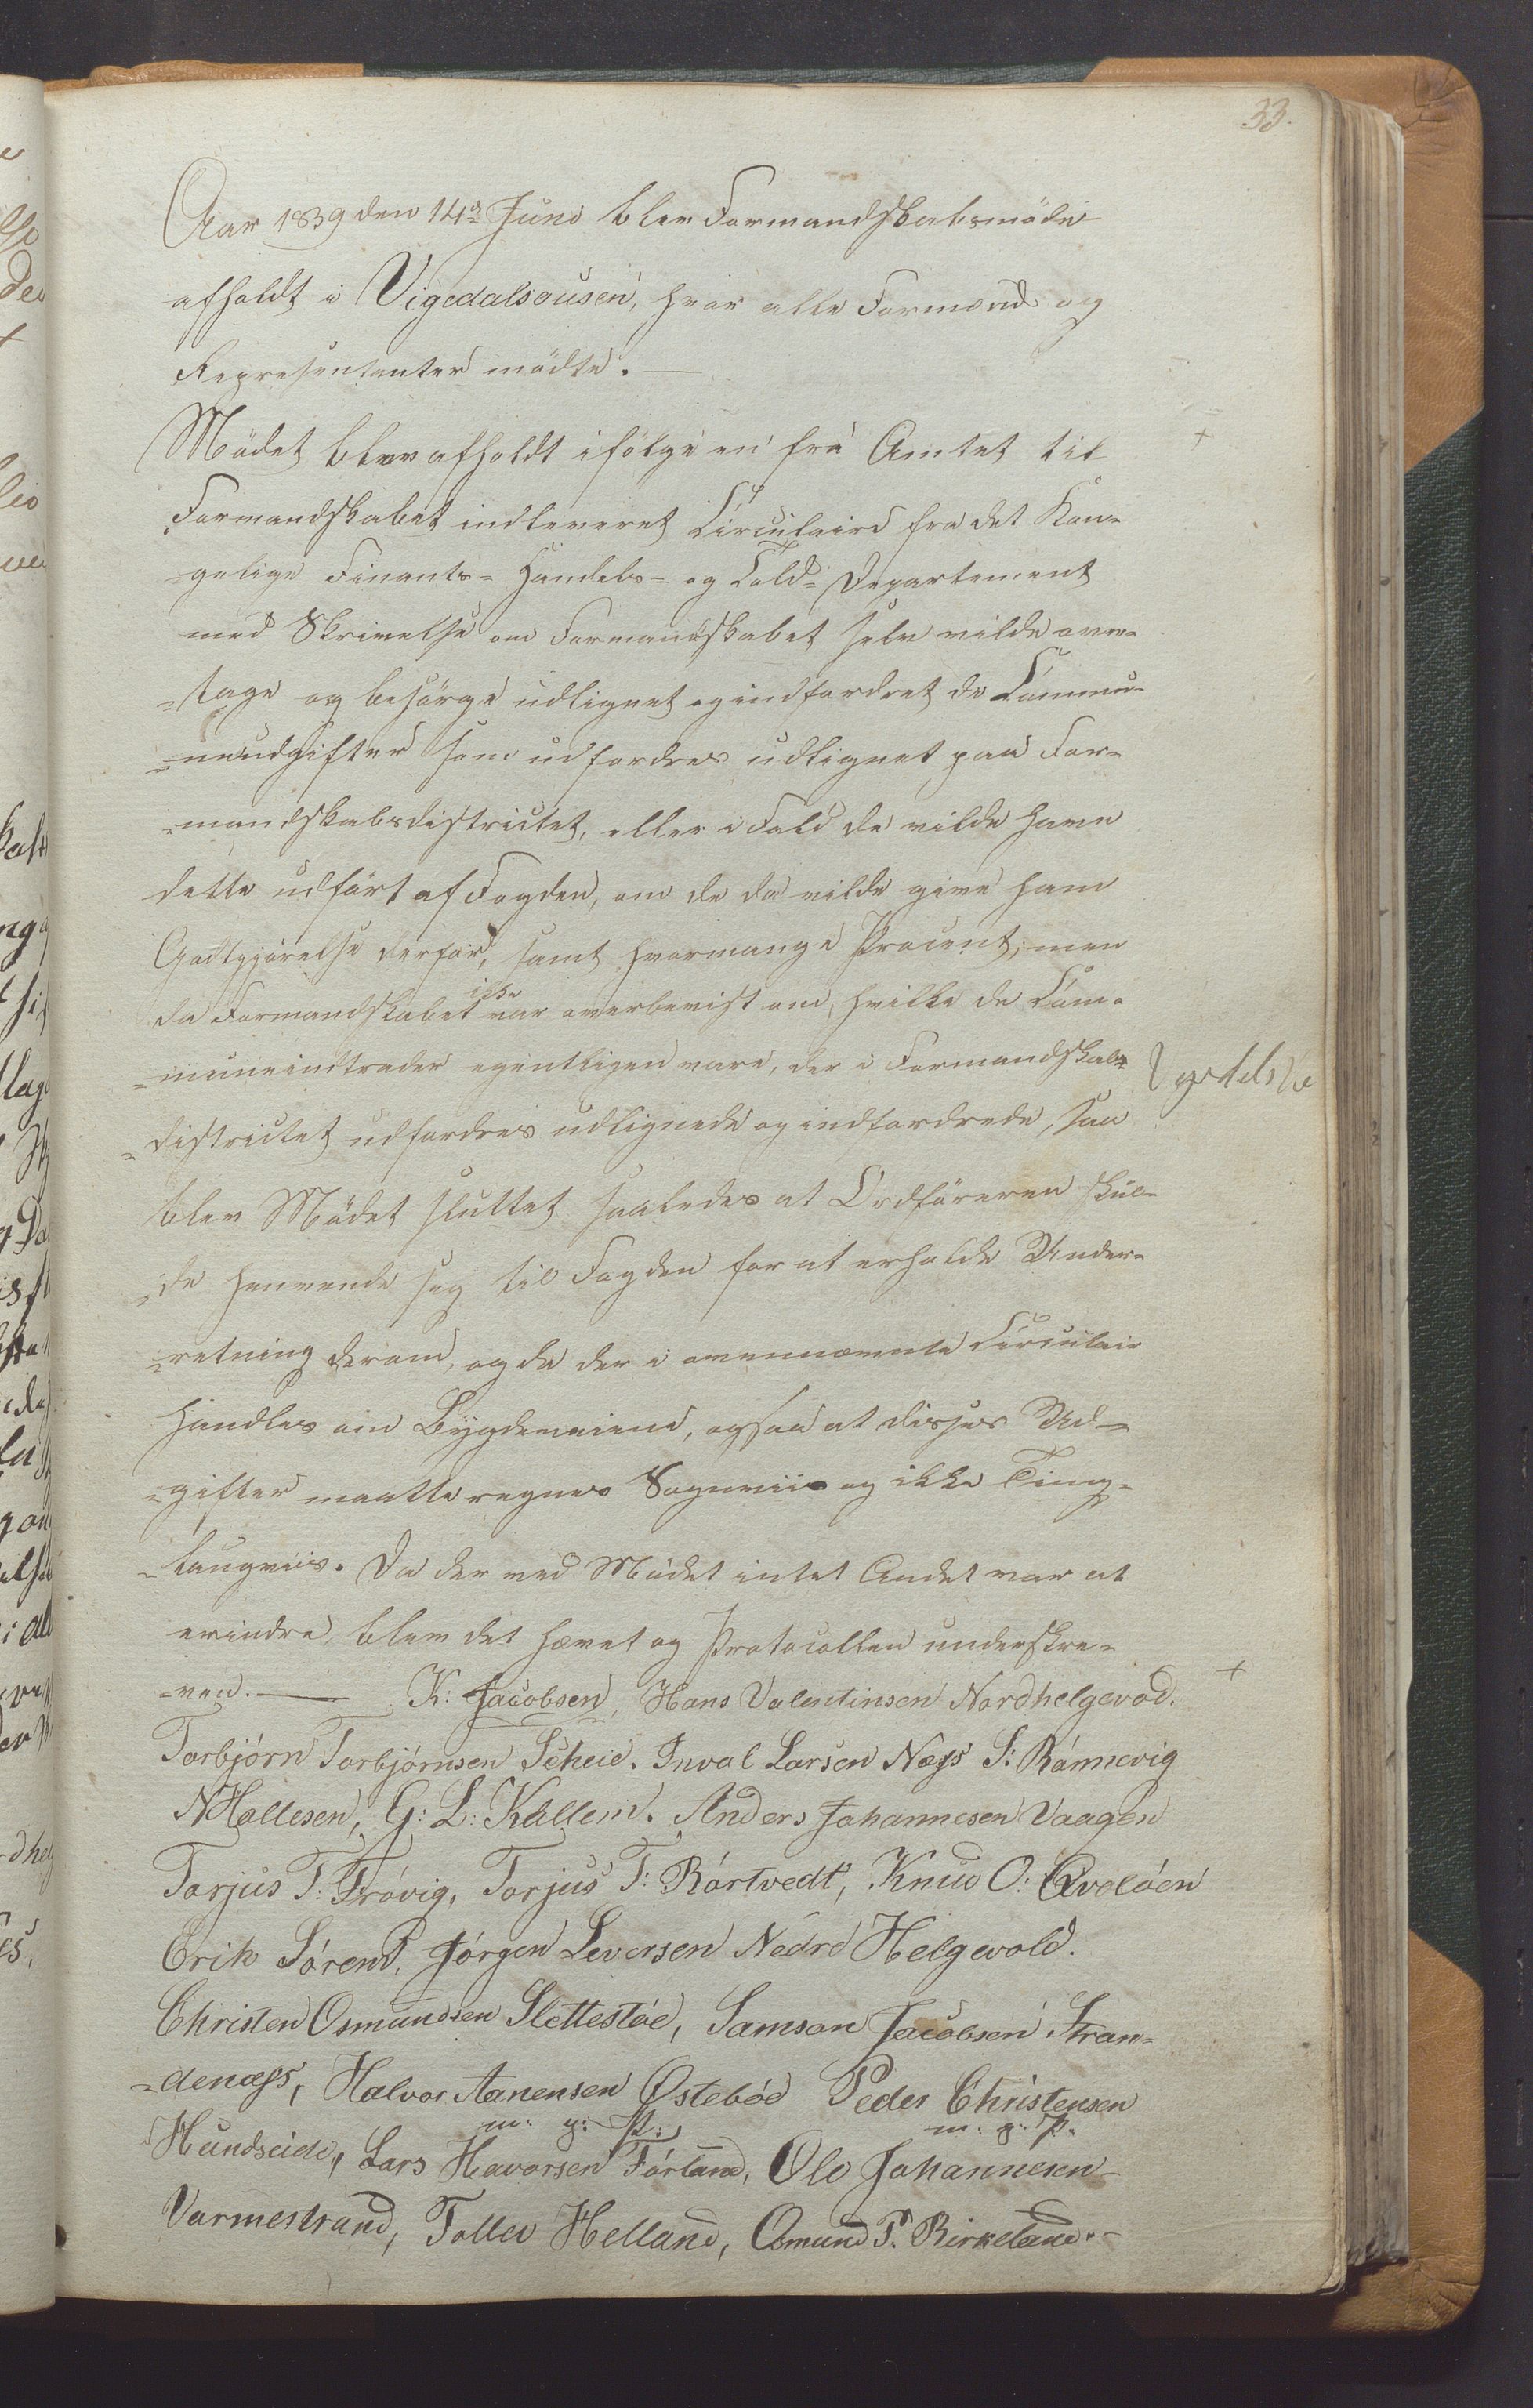 33.
Aar 1839 den 14de Juni blev Formandskabsmöde
afholdt i Vigedalsousen, hvor alle Formænd og
Repræsentanter mödte. —
Mödet blev afholdt ifölge en fra Amtet til
Formandskabet indleveret Circulaire fra det Kon-
-gelige Finants- Handels- og Told- Departement
med Skrivelse om Formandskabet selv vilde over-
-tage og besörge udlignet og indfordret de Commu-
-neudgifter som udfordres udlignet paa For-
-mandskabsdistrictet, eller i Fald de vilde have
dette udfört af Fogden, om de da vilde give ham
Godtgjörelse derfor, samt hvormange Procent; men
da Formandskabet ikke var overbevist om, hvilke de Com-
-muneindtrader egentligen vare, der i Formandskabs-
-districtet udfordres udlignede og indfordrede, saa
blev Mödet sluttet saaledes at Ordföreren skul-
-de henvende sig til Fogden for at erholde Under-
-retning derom, og da der i ovennævnte Circulair
handles om Bygdeveiene, ogsaa at disses Ud-
-gifter maatte regnes Sogneviis og ikke Ting-
-laugviis. Da der ved Mödet intet Andet var at
erindre, blev det hævet og Protocollen underskre-
-ven. — K: Jacobsen, Hans Valentinsen Nordhelgevod.
Torbjörn Torbjörnsen Scheie. Inval Larsen Næss S: Rönnevig
N Hallesen, G: L: Kallem. Anders Johannesen Vaagen
Torjus T: Frövig, Torjus T: Rörtvedt, Knud O: Qvalöen
Erik Sörens, Jörgen Seversen Nedre Helgevold.
Christen Osmundsen Slettestöe, Samson Jacobsen Stran-
-denæss, Halvor Aanensen Östeböe Peder Christensen
m: g: P: m: g: P.
Hundseide, Lars Havorsen Förland, Ole Johannesen
Varmestrand, Tollev Helland, Osmund P. Birkeland. -